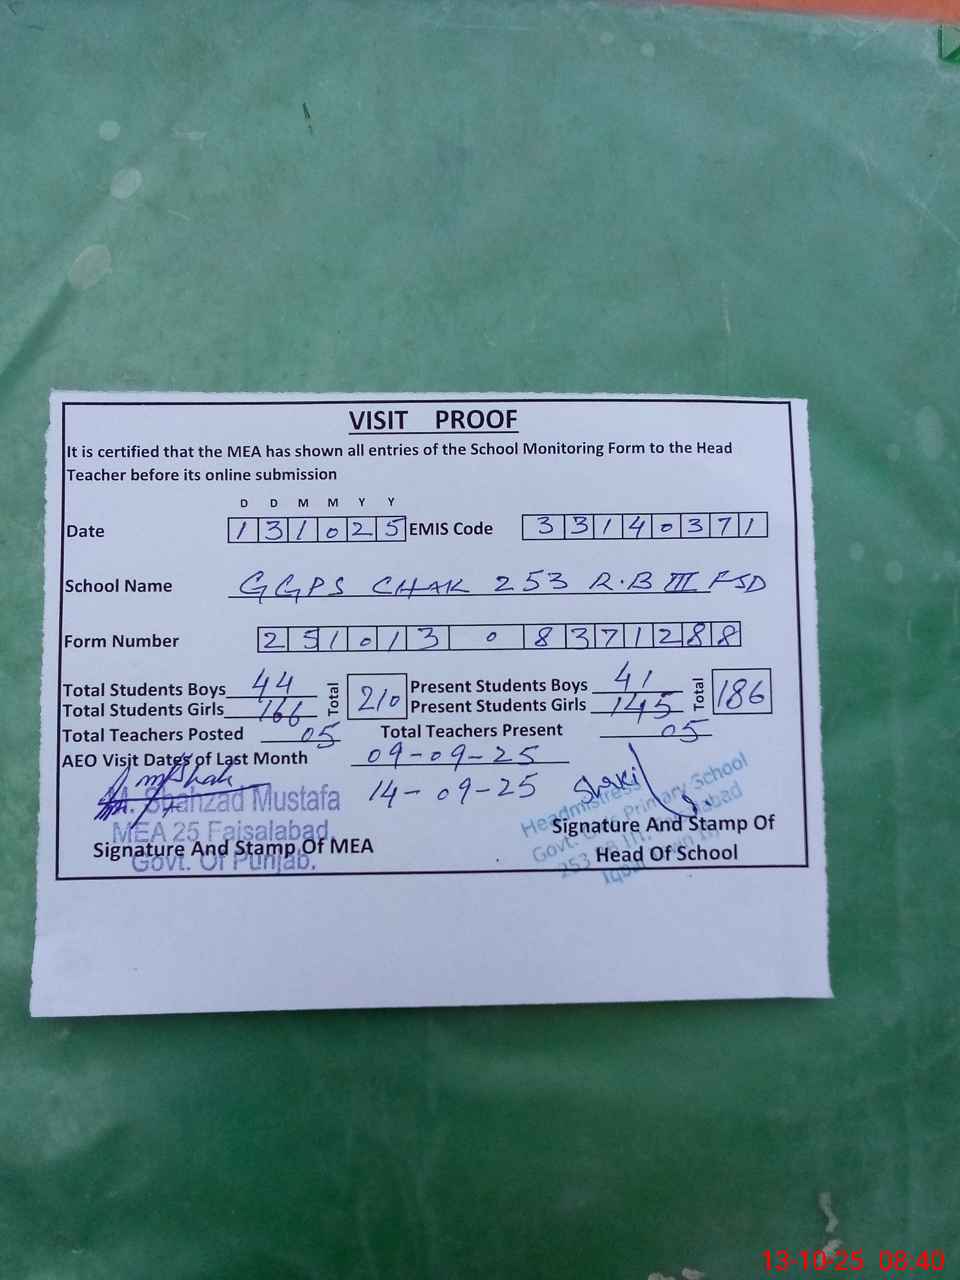 VISIT PROOF
It is certified that the MEA has shown all entries of the School Monitoring Form to the Head
Teacher before its online submission
D D M M Y Y
Date 131025 EMIS Code 33140371
School Name GGPS CHAK 253 R.B III FSD
Form Number 251013 0 8371288
Total Students Boys 44 Total 210 Present Students Boys 41 Total 186
Total Students Girls 166 Present Students Girls 145
Total Teachers Posted 05 Total Teachers Present 05
AEO Visit Dates of Last Month 09-09-25
14-09-25
M. Shahzad Mustafa
MEA 25 Faisalabad.
Govt. Of Punjab.
Signature And Stamp Of MEA
Headmistress
Govt. Primary School
253
Signature And Stamp Of
Head Of School
13-10-25 08:40